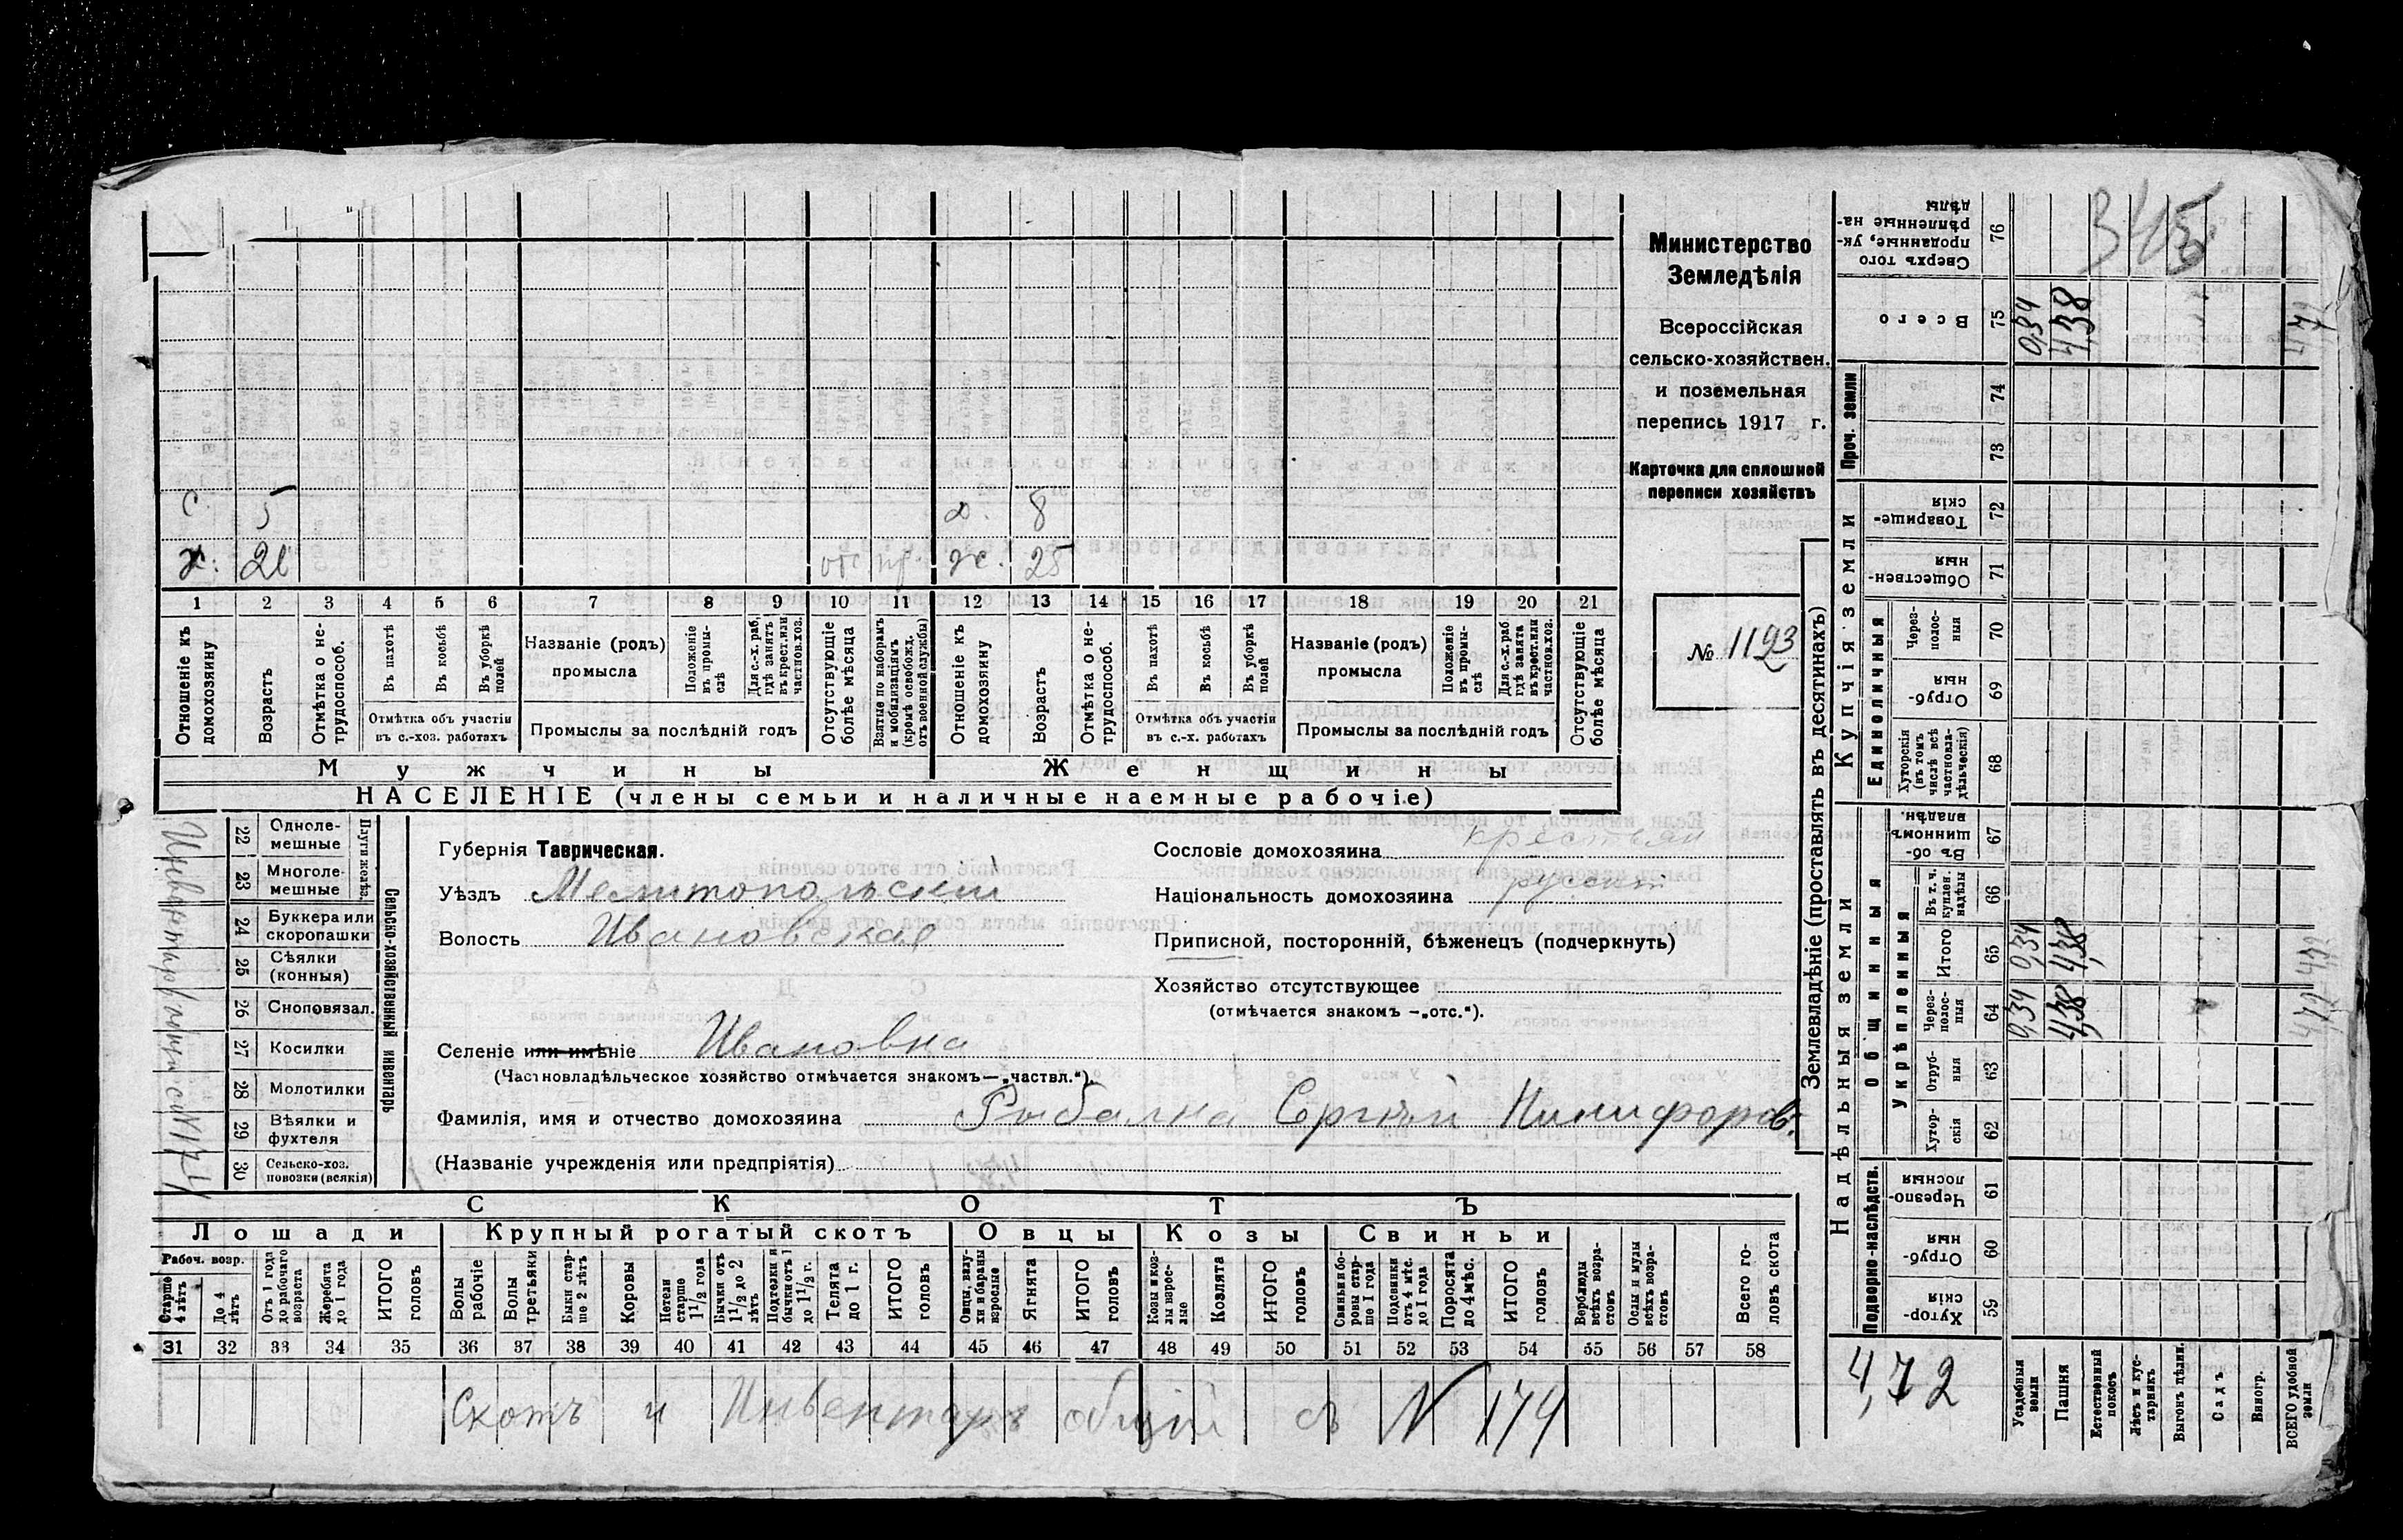 345
Министерство
Земледѣлія
Всероссійская
сельско-хозяйствен.
и поземельная
перепись 1917 г.
Карточка для сплошной
переписи хозяйствъ
№ 1193
С. 5 д. 8
х: 26 отс пр. ж. 25
1 2 3 4 5 6 7 8 9 10 11 12 13 14 15 16 17 18 19 20 21
Отношеніе къ домохозяину
Возрастъ
Отмѣтка о не-трудоспособ.
Въ пахотѣ
Въ косьбѣ
Въ уборкѣ полей
Отмѣтка объ участіи
въ с.-хоз. работахъ
Названіе (родъ)
промысла
Положеніе въ промы-слѣ
Для с.-х. раб, гдѣ занятъ въ крест. или частнов. хоз.
Промыслы за послѣдній годъ
Отсутствующіе болѣе мѣсяца
Взятые по наборамъ и мобилизаціямъ (кромѣ освобожд. отъ военной службы)
Отношеніе къ домохозяину
Возрастъ
Отмѣтка о не-трудоспособ.
Въ пахотѣ
Въ косьбѣ
Въ уборкѣ полей
Отмѣтка объ участіи
въ с.-х. работахъ
Названіе (родъ)
промысла
Положеніе въ промы-слѣ
Для с.-х. раб. гдѣ занята въ крест. или частнов. хоз.
Промыслы за послѣдній годъ
Отсутствующіе болѣе мѣсяца
Мужчины Женщины
НАСЕЛЕНІЕ (члены семьи и наличные наемные рабочіе)
Инвентарь общій с №174
Сельско-хозяйственный инвентарь
Плуги желѣз.
22 Одноле-мешные
23 Многоле-мешные
24 Буккера или скоропашки
25 Сѣялки (конныя)
26 Сноповязал.
27 Косилки
28 Молотилки
29 Вѣялки и фухтеля
30 Сельско-хоз. повозки (всякія)
Губернія Таврическая.
Уѣздъ Мелитопольскій
Волость Ивановская
Сословіе домохозяина крестьян
Національность домохозяина русскій
Приписной, посторонній, бѣженецъ (подчеркнуть)
Хозяйство отсутствующее
(отмѣчается знакомъ —„отс.“).
Селеніе или имѣніе Ивановка
(Частновладѣльческое хозяйство отмѣчается знакомъ—„частвл.“).
Фамилія, имя и отчество домохозяина Рыбалка Сергѣй Никифоров.
(Названіе учрежденія или предпріятія)
СКОТЪ
Лошади Крупный рогатый скотъ Овцы Козы Свиньи
Рабоч. возр.
Старше 4 лѣтъ
До 4 лѣтъ
Отъ 1 года до рабочаго возраста
Жеребята до 1 года
ИТОГО головъ
Волы рабочіе
Волы третьяки
Быки стар-ше 2 лѣтъ
Коровы
Нетели старше 1½ года
Бычки отъ 1½ до 2 лѣтъ
Подтелки и бычки отъ 1 до 1½ г.
Телята до 1 г.
ИТОГО головъ
Овцы, валу-хи и бараны взрослые
Ягнята
ИТОГО головъ
Козы и коз-лы взрос-лые
Козлята
ИТОГО головъ
Свиньи и бо-ровы стар-ше 1 года
Подсвинки отъ 4 мѣс. до 1 года
Поросята до 4 мѣс.
ИТОГО головъ
Верблюды всѣхъ возра-стовъ
Ослы и мулы всѣхъ возра-стовъ
Всего го-ловъ скота
31 32 33 34 35 36 37 38 39 40 41 42 43 44 45 46 47 48 49 50 51 52 53 54 55 56 57 58
Скотъ и Инвентарь общій съ № 174
Землевладѣніе (проставлять въ десятинахъ)
Надѣльныя земли
Купчія земли
Проч. земли
Подворно-наслѣдств.
Общинныя
Укрѣпленныя
Единоличныя
Сверхъ того проданные, ук-рѣпленные на-дѣлы 76
Всего 75 0,34 4,38
74
73
Товарище-скія 72
Обществен-ныя 71
Через-полос-ныя 70
Отруб-ныя 69
Хуторскія (въ томъ числѣ всѣ частновла-дѣльческія) 68
Въ об-щинномъ владѣн. 67
Въ т. ч. куплен. надѣлы 66
Итого 65 0,34 4,38
Через-полос-ныя 64 0,34 4,38
Отруб-ныя 63
Хутор-скія 62
Черезпо-лосныя 61
Отруб-ныя 60
Хутор-скія 59
4,72
Усадебныя земли
Пашня
Естественный покосъ
Лѣсъ и кус-тарникъ
Выгонъ дѣлин.
Садъ
Виногр.
ВСЕГО удобной земли